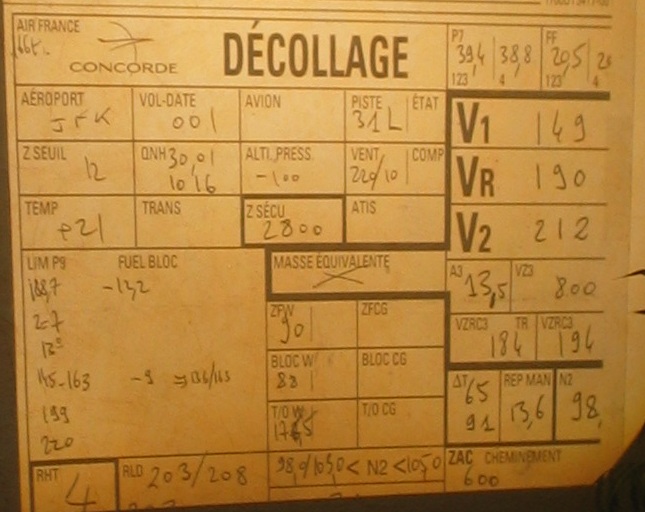 AIR FRANCE
CONCORDE
DÉCOLLAGE
P7
39,4 38,8
123 4
FF
20,5
123 4
AÉROPORT
JFK
VOL-DATE
001
AVION
PISTE
31L
ÉTAT
V1 149
Z SEUIL
12
QNH 30,01
1016
ALTI.PRESS.
-100
VENT
220/10
COMP
VR 190
TEMP
+21
TRANS
Z SÉCU
2800
ATIS
V2 212
LIM P9 FUEL BLOC
-13,2
145-163 -9
199
220
MASSE ÉQUIVALENTE
A3
13,5
VZ3
800
ZFW
90
ZFCG
VZRC3 TR
184
VZRC3
194
BLOC W
BLOC CG
T/O W
T/O CG
ΔT
65
91
REP MAN
13,6
N2
98,
RHT
4
RLD 203/208
98,0/103,0 < N2 < 105,0
ZAC CHEMINEMENT
600